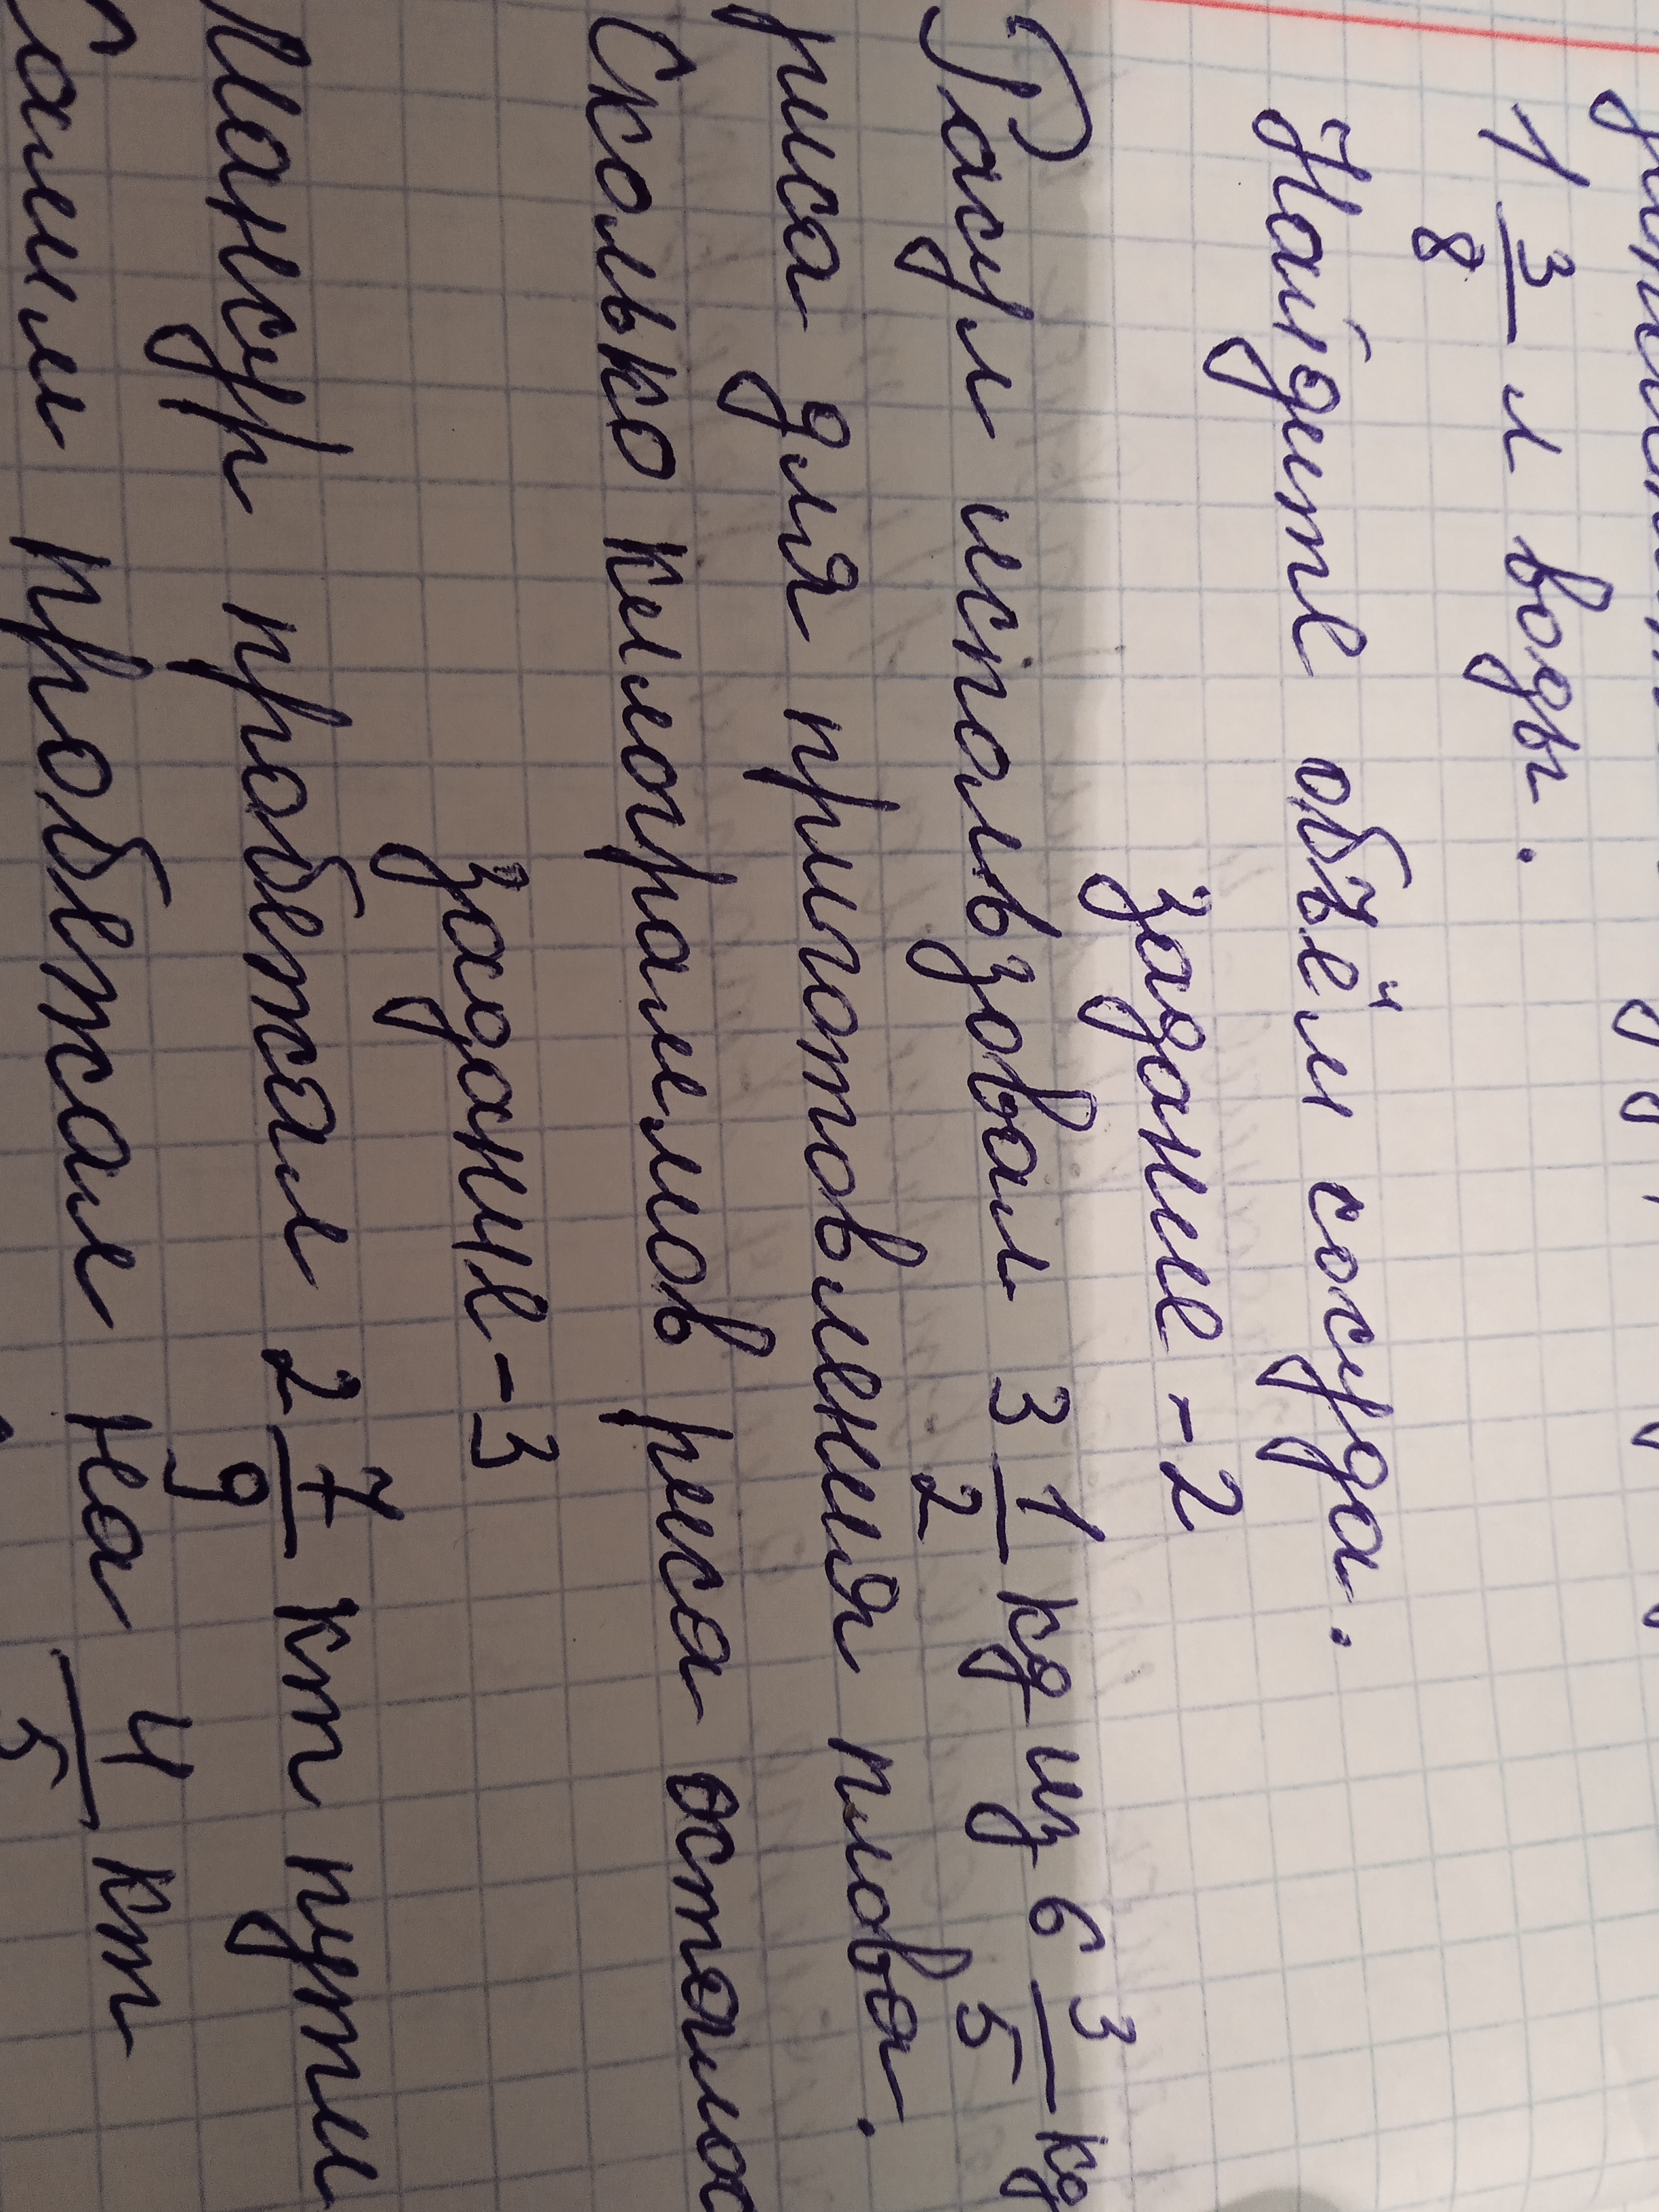 1 3/8 л воды.
Найдите объём сосуда.
задание - 2
Расул использовал 3 1/2 kg из 6 3/5 kg
риса для приготовления плова.
Сколько килограммов риса осталос
задание - 3
Мансур пробежал 2 7/9 km пути
пробежал на 4/5 km